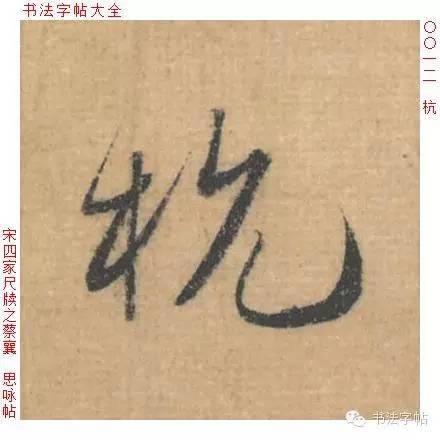 书法字帖大全
〇〇一二 杭
杭
宋四家尺牍之蔡襄 思咏帖
书法字帖